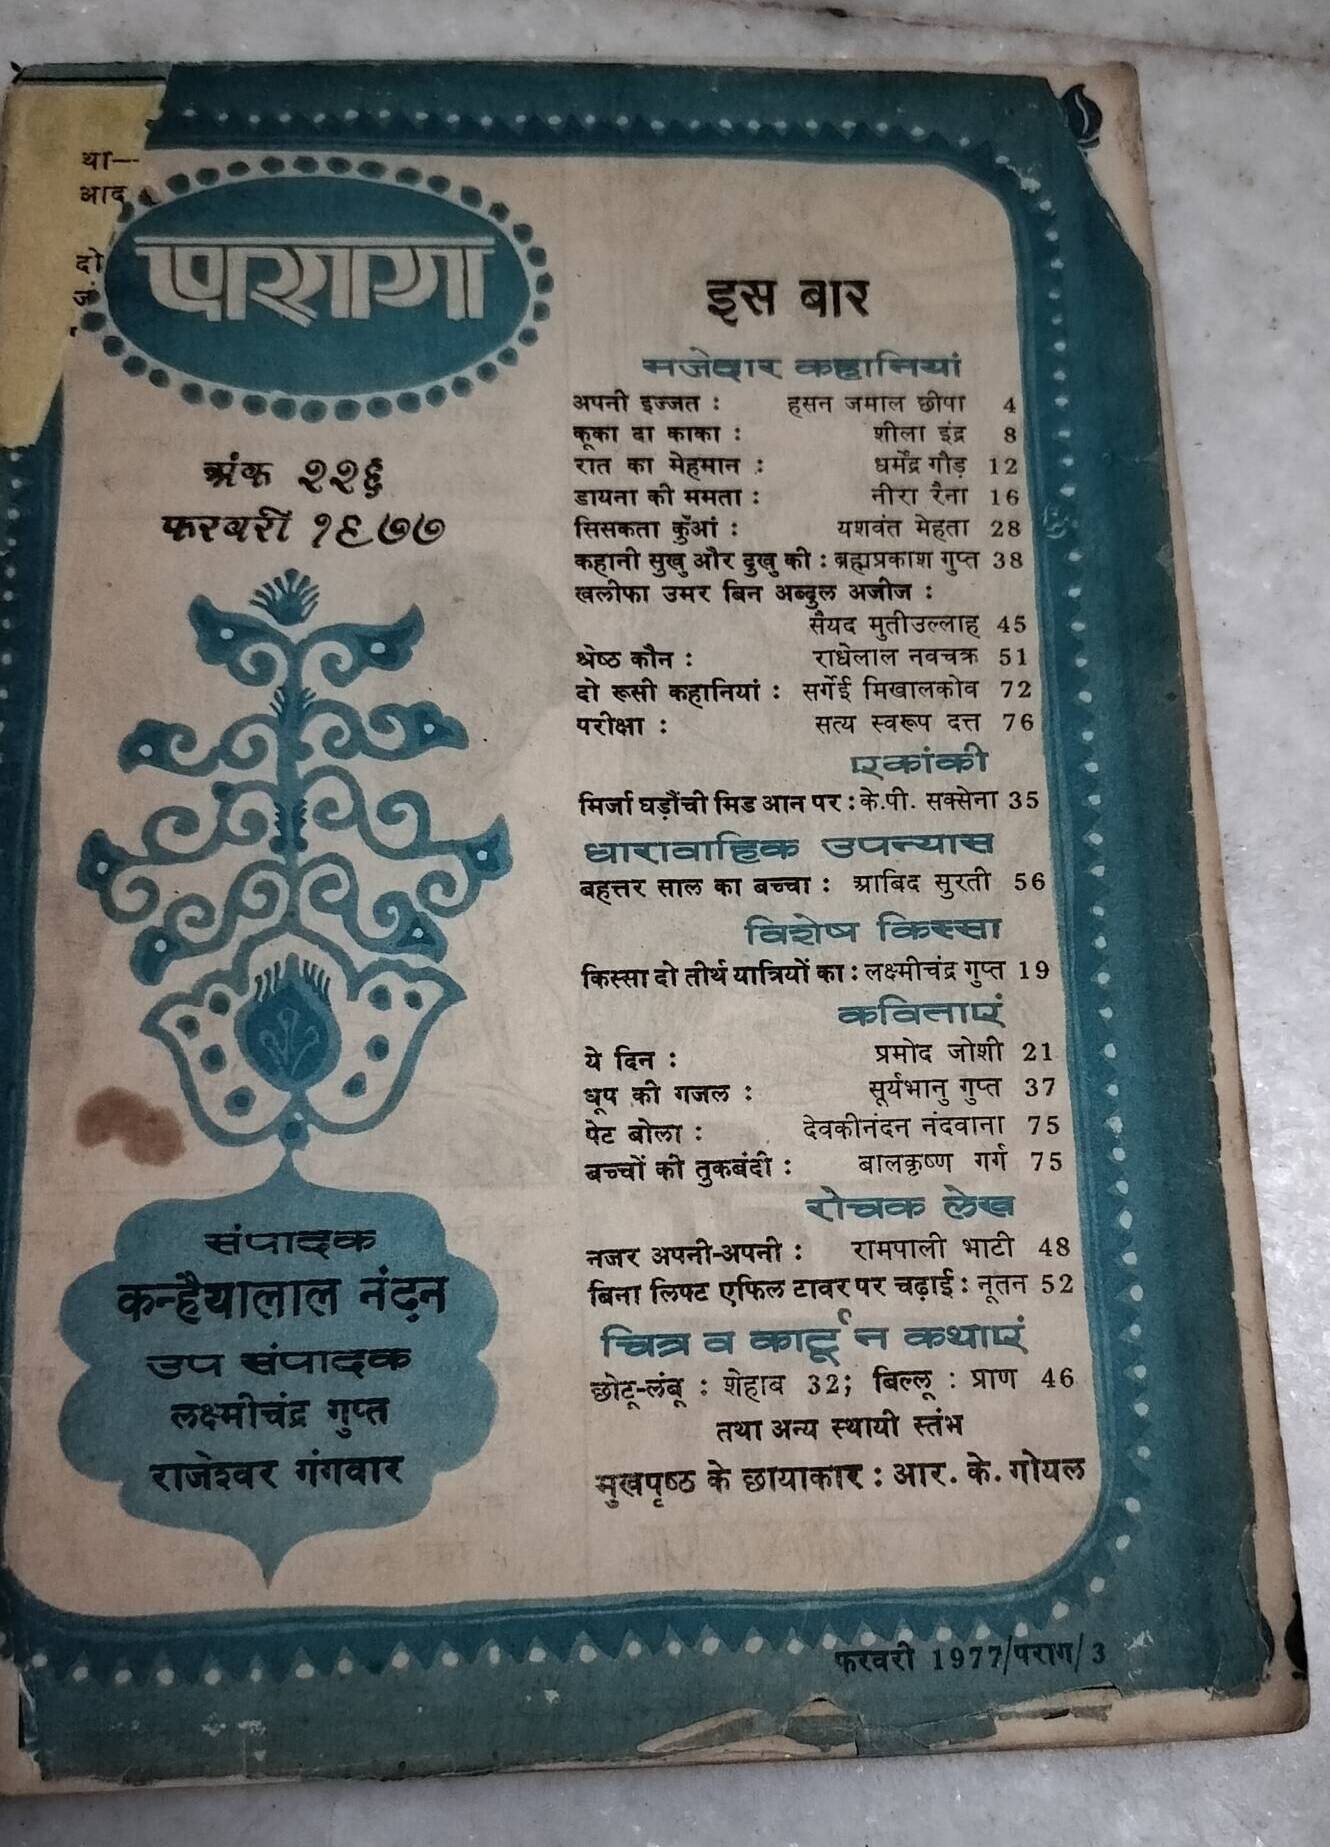 था—
आद
दो
ज.
पराग
अंक २२६
फरवरी १९७७
संपादक
कन्हैयालाल नंदन
उप संपादक
लक्ष्मीचंद्र गुप्त
राजेश्वर गंगवार
इस बार
मजेदार कहानियां
अपनी इज्जत : हसन जमाल छीपा 4
कूका दा काका : शीला इंद्र 8
रात का मेहमान : धर्मेंद्र गौड़ 12
डायना की ममता : नीरा रैना 16
सिसकता कुँआं : यशवंत मेहता 28
कहानी सुखु और दुखु की : ब्रह्मप्रकाश गुप्त 38
खलीफा उमर बिन अब्दुल अजीज :
सैयद मुतीउल्लाह 45
श्रेष्ठ कौन : राधेलाल नवचक्र 51
दो रूसी कहानियां : सर्गेई मिखालकोव 72
परीक्षा : सत्य स्वरूप दत्त 76
एकांकी
मिर्जा घड़ौंची मिड आन पर : के.पी. सक्सेना 35
धारावाहिक उपन्यास
बहत्तर साल का बच्चा : आबिद सुरती 56
विशेष किस्सा
किस्सा दो तीर्थ यात्रियों का : लक्ष्मीचंद्र गुप्त 19
कविताएं
ये दिन : प्रमोद जोशी 21
धूप की गजल : सूर्यभानु गुप्त 37
पेट बोला : देवकीनंदन नंदवाना 75
बच्चों की तुकबंदी : बालकृष्ण गर्ग 75
रोचक लेख
नजर अपनी-अपनी : रामपाली भाटी 48
बिना लिफ्ट एफिल टावर पर चढ़ाई : नूतन 52
चित्र व कार्टून कथाएं
छोटू-लंबू : शेहाब 32; बिल्लू : प्राण 46
तथा अन्य स्थायी स्तंभ
मुखपृष्ठ के छायाकार : आर. के. गोयल
फरवरी 1977/पराग/3